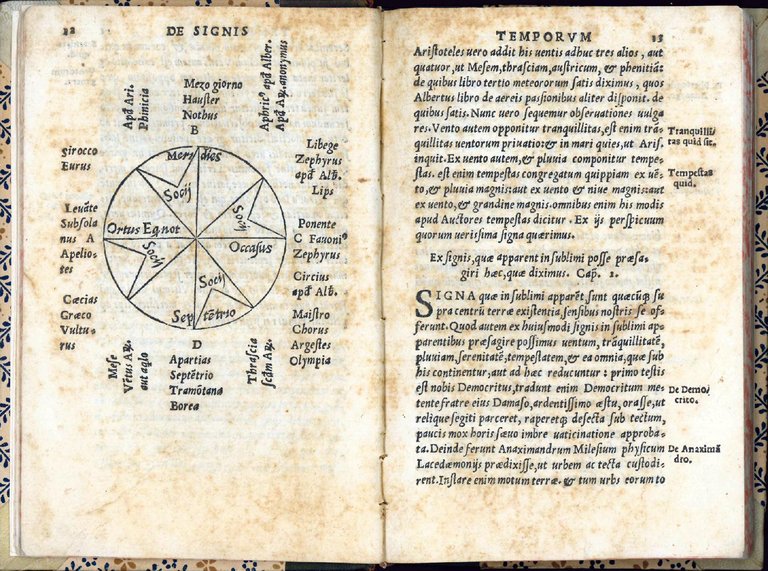 12
DE SIGNIS
Apđ Ari.
Phinicia
Mezo giorno
Hauster
Nothus
B
Aphricꝰ apđ Alber.
Apđ Aꝶ. anonymus
Syrocco
Eurus
Leuāte
Subsola
nus A
Apelio-
tes
Cæcias
Græco
Vultu-
rus
Libege
Zephyrus
apđ Alb.
Lips
Ponente
C Fauoniꝰ
Zephyrus
Circius
apđ Alb.
Maistro
Chorus
Argestes
Olympia
Meri dies
Socij
Socij
Ortus Eqnot
Occasus
Socij
Socij
Sep tētrio
Mese
Vētus Aꝶ.
aut aqlo
D
Apartias
Septētrio
Tramōtana
Borea
Thrascia
scđm Aꝶ.
TEMPORVM
13
Aristoteles uero addit his uentis adhuc tres alios, aut
quatuor, ut Mesem, thrasciam, austricum, & phenitiā:
de quibus libro tertio meteororum satis diximus, quos
Albertus libro de aereis passionibus aliter disponit. de
quibus satis. Nunc uero sequemur obseruationes uulga
res. Vento autem opponitur tranquillitas, est enim trā-
quillitas uentorum priuatio: & in mari quies, ut Aris.
inquit. Ex uento autem, & pluuia componitur tempe-
stas. est enim tempestas congregatum quippiam ex uē-
to, & pluuia magnis: aut ex uento & niue magnis: aut
ex uento, & grandine magnis. omnibus enim his modis
apud Auctores tempestas dicitur. Ex ijs perspicuum
quorum uerissima signa quærimus.
Tranquilli
tas quid sit.
Tempestas
quid.
Ex signis, quæ apparent in sublimi posse præsa-
giri hæc, quæ diximus. Cap. 1.
SIGNA quæ in sublimi apparēt, sunt quæcūq; su
pra centrū terræ existentia, sensibus nostris se of-
ferunt. Quod autem ex huiusmodi signis in sublimi ap-
parentibus præsagire possimus uentum, trāquillitatē,
pluuiam, serenitatē, tempestatem, & ea omnia, quæ sub
his continentur, aut ad hæc reducuntur: primo testis
est nobis Democritus, tradunt enim Democritum me-
tente fratre eius Damaso, ardentissimo æstu, orasse, ut
relique segiti parceret, raperetq; desecta sub tectum,
paucis mox horis sæuo imbre uaticinatione approba-
ta. Deinde ferunt Anaximandrum Milesium physicum
Lacedæmonijs prædixisse, ut urbem ac tecta custodi-
rent. Instare enim motum terræ. & tum urbs eorum to
De Demo
crito.
De Anaximā
dro.